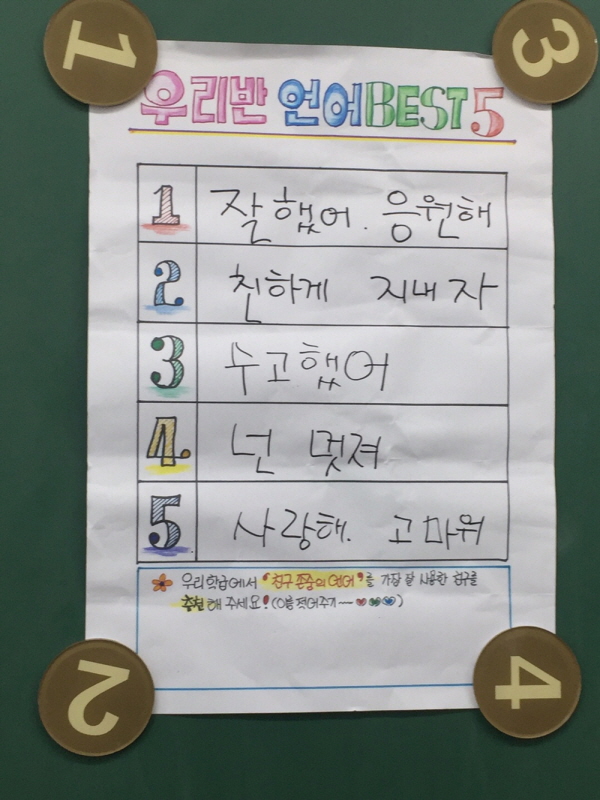 1
3
우리반 언어BEST5
1 잘했어. 응원해
2 친하게 지내자
3 수고했어
4. 넌 멋져
5 사랑해. 고마워
우리학급에서 "친구 존중의 언어"를 가장 잘 사용한 친구를
추천해 주세요! (이름 적어주기~~)
2
4